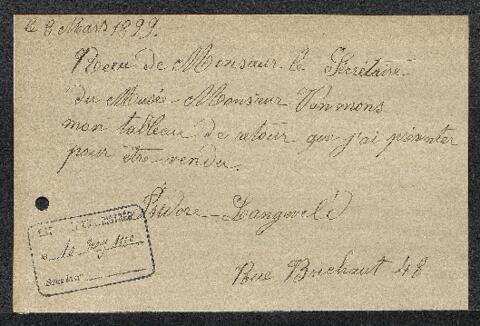 le 8 Mars 1899.
Recu de Monsieur le Secrétaire
du Musée Monsieur Vanmons
mon tableau de retour que j'ai présenter
pour être vendu.
Isidore Langwelé
Rue Brichaut 48